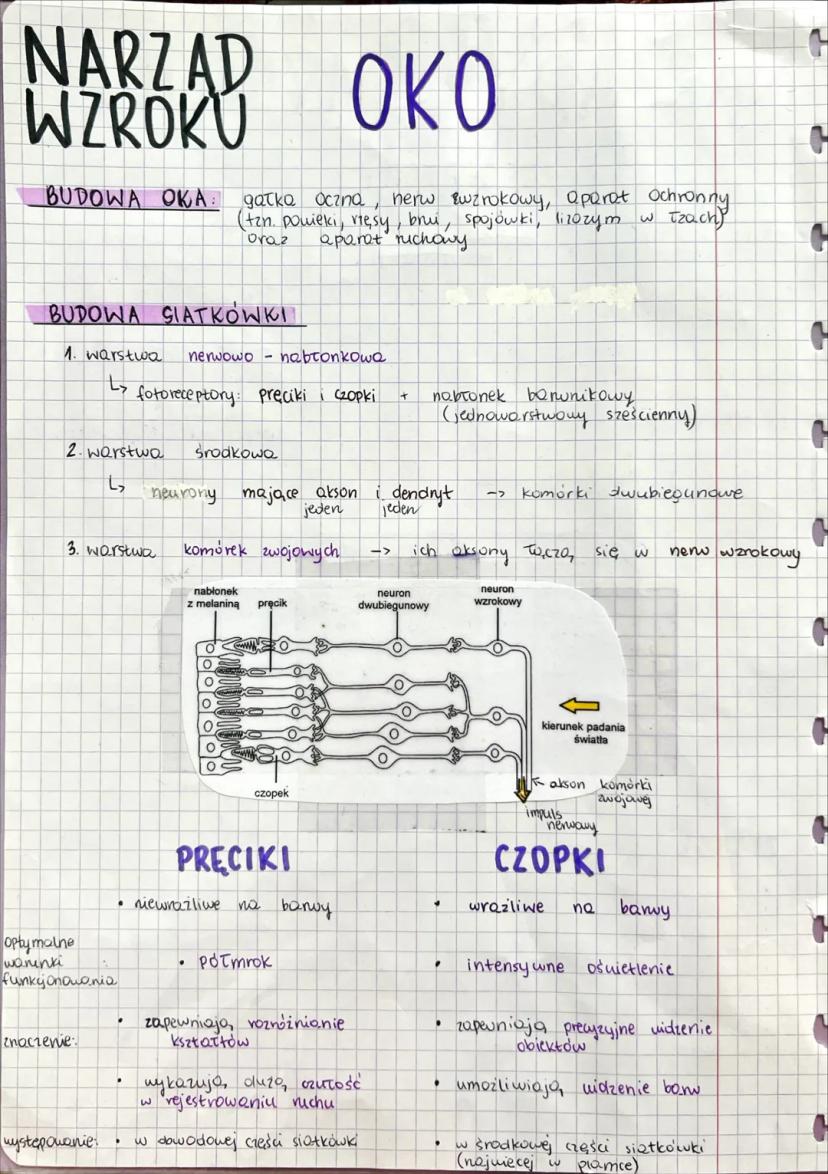 NARZĄD
WZROKU
OKO
BUDOWA OKA: gałka oczna, nerw wzrokowy, aparat ochronny
(tzn. powieki, rzęsy, brwi, spojówki, lizozym w łzach)
oraz aparat ruchowy
BUDOWA SIATKÓWKI
1. warstwa nerwowo - nabłonkowa
↳ fotoreceptory: pręciki i czopki + nabłonek barwnikowy
(jednowarstwowy sześcienny)
2. warstwa środkowa
↳ neurony mające akson i dendryt -> komórki dwubiegunowe
jeden jeden
3. warstwa komórek zwojowych -> ich aksony łączą się w nerw wzrokowy
nabłonek
z melaniną
pręcik
neuron
dwubiegunowy
neuron
wzrokowy
kierunek padania
światła
czopek
akson komórki
zwojowej
impuls
nerwowy
PRĘCIKI
CZOPKI
• niewrażliwe na barwy
• wrażliwe na barwy
optymalne
warunki :
funkcjonowania
• półmrok
• intensywne oświetlenie
znaczenie:
• zapewniają rozróżnianie
kształtów
• zapewniają precyzyjne widzenie
obiektów
• wykazują dużą czułość
w rejestrowaniu ruchu
• umożliwiają widzenie barw
występowanie: • w obwodowej części siatkówki
• w środkowej części siatkówki
(najwięcej w plamce)